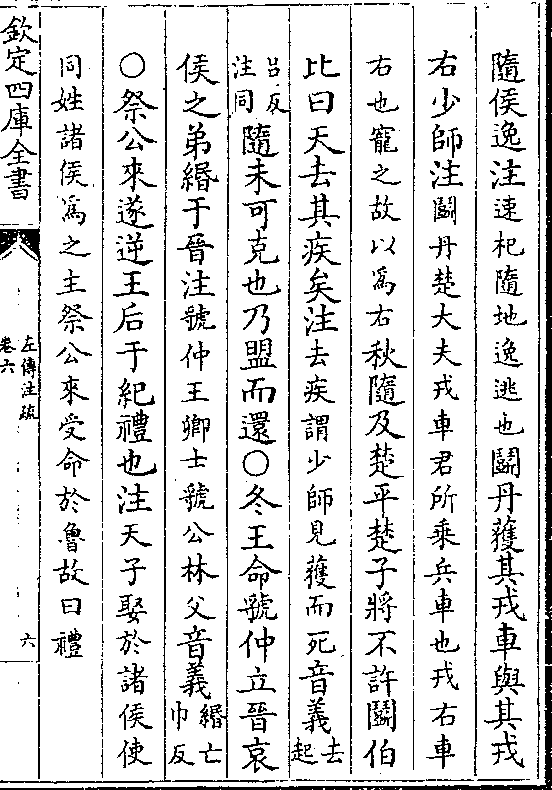 隨侯逸注速杞隨地逸逃也鬭丹獲其戎車與其戎
右少師注鬭丹楚大夫戎車君所乘兵車也戎右車
右也寵之故以為右秋隨及楚平楚子將不許鬭伯
比曰天去其疾矣注去疾謂少師見獲而死音義去起
呂反注同隨未可克也乃盟而還○冬王命虢仲立晉哀
侯之弟緡于晉注虢仲王卿士虢公林父音義緡亡巾反
○祭公來遂逆王后于紀禮也注天子娶於諸侯使
同姓諸侯為之主祭公來受命於魯故曰禮
欽定四庫全書
左傳注疏
卷六
六